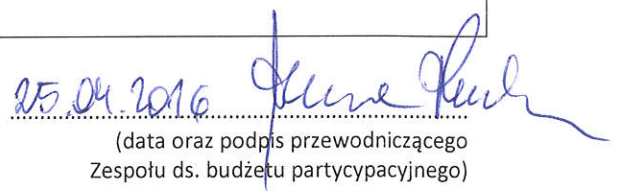 25.04.2016
(data oraz podpis przewodniczącego
Zespołu ds. budżetu partycypacyjnego)